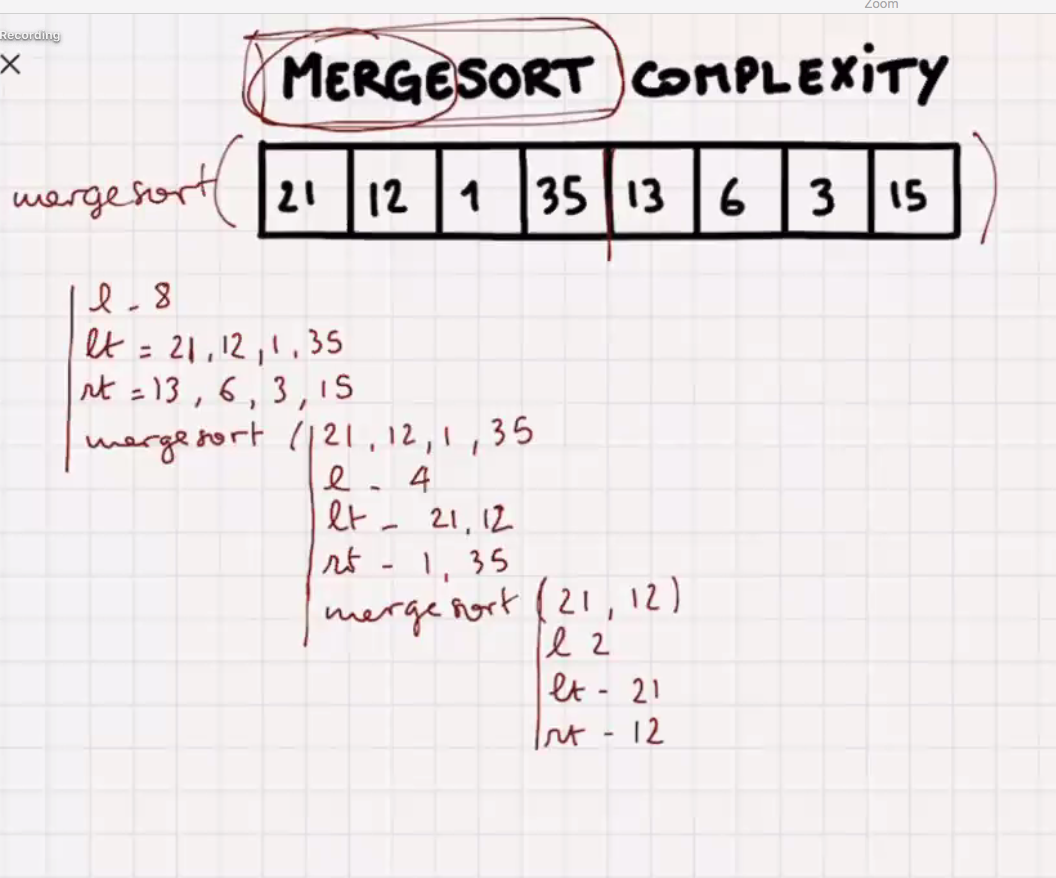 Zoom
Recording
MERGESORT COMPLEXITY
mergesort( 21 12 1 35 13 6 3 15 )
l - 8
lt = 21, 12, 1, 35
rt = 13, 6, 3, 15
mergesort ( 21, 12, 1, 35
l - 4
lt - 21, 12
rt - 1, 35
mergesort (21, 12)
l 2
lt - 21
rt - 12